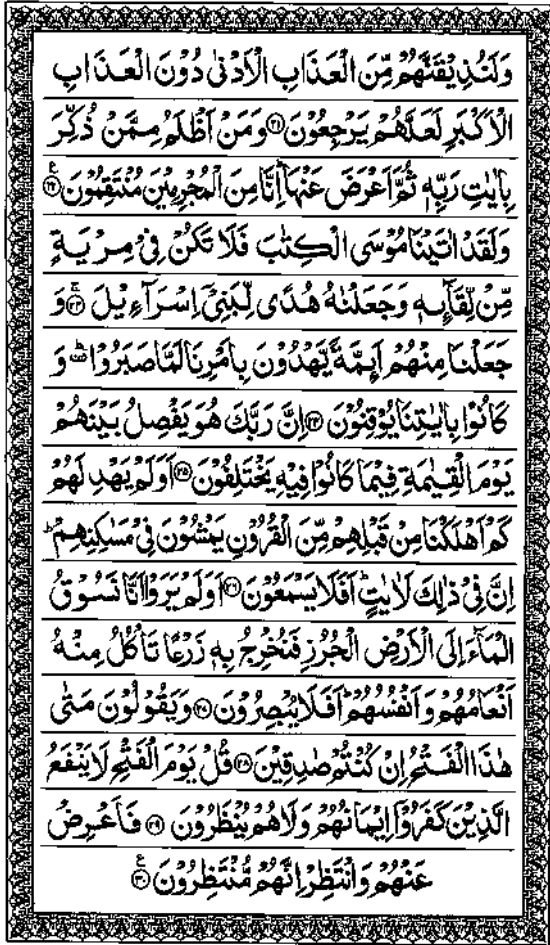 وَلَنُذِيْقَنَّهُمْ مِّنَ الْعَذَابِ الْاَدْنٰى دُوْنَ الْعَذَابِ
الْاَكْبَرِ لَعَلَّهُمْ يَرْجِعُوْنَ ﴿۲۱﴾ وَمَنْ اَظْلَمُ مِمَّنْ ذُكِّرَ
بِاٰيٰتِ رَبِّهٖ ثُمَّ اَعْرَضَ عَنْهَا ؕ اِنَّا مِنَ الْمُجْرِمِيْنَ مُنْتَقِمُوْنَ ﴿۲۲﴾
وَلَقَدْ اٰتَيْنَا مُوْسَى الْكِتٰبَ فَلَا تَكُنْ فِيْ مِرْيَةٍ
مِّنْ لِّقَآئِهٖ وَجَعَلْنٰهُ هُدًى لِّبَنِيْۤ اِسْرَآءِيْلَ ﴿۲۳﴾ وَ
جَعَلْنَا مِنْهُمْ اَئِمَّةً يَّهْدُوْنَ بِاَمْرِنَا لَمَّا صَبَرُوْا ۟ؕ وَ
كَانُوْا بِاٰيٰتِنَا يُوْقِنُوْنَ ﴿۲۴﴾ اِنَّ رَبَّكَ هُوَ يَفْصِلُ بَيْنَهُمْ
يَوْمَ الْقِيٰمَةِ فِيْمَا كَانُوْا فِيْهِ يَخْتَلِفُوْنَ ﴿۲۵﴾ اَوَلَمْ يَهْدِ لَهُمْ
كَمْ اَهْلَكْنَا مِنْ قَبْلِهِمْ مِّنَ الْقُرُوْنِ يَمْشُوْنَ فِيْ مَسٰكِنِهِمْ ؕ
اِنَّ فِيْ ذٰلِكَ لَاٰيٰتٍ ؕ اَفَلَا يَسْمَعُوْنَ ﴿۲۶﴾ اَوَلَمْ يَرَوْا اَنَّا نَسُوْقُ
الْمَآءَ اِلَى الْاَرْضِ الْجُرُزِ فَنُخْرِجُ بِهٖ زَرْعًا تَاْكُلُ مِنْهُ
اَنْعَامُهُمْ وَاَنْفُسُهُمْ ؕ اَفَلَا يُبْصِرُوْنَ ﴿۲۷﴾ وَيَقُوْلُوْنَ مَتٰى
هٰذَا الْفَتْحُ اِنْ كُنْتُمْ صٰدِقِيْنَ ﴿۲۸﴾ قُلْ يَوْمَ الْفَتْحِ لَا يَنْفَعُ
الَّذِيْنَ كَفَرُوْۤا اِيْمَانُهُمْ وَلَا هُمْ يُنْظَرُوْنَ ﴿۲۹﴾ فَاَعْرِضْ
عَنْهُمْ وَانْتَظِرْ اِنَّهُمْ مُّنْتَظِرُوْنَ ﴿۳۰﴾